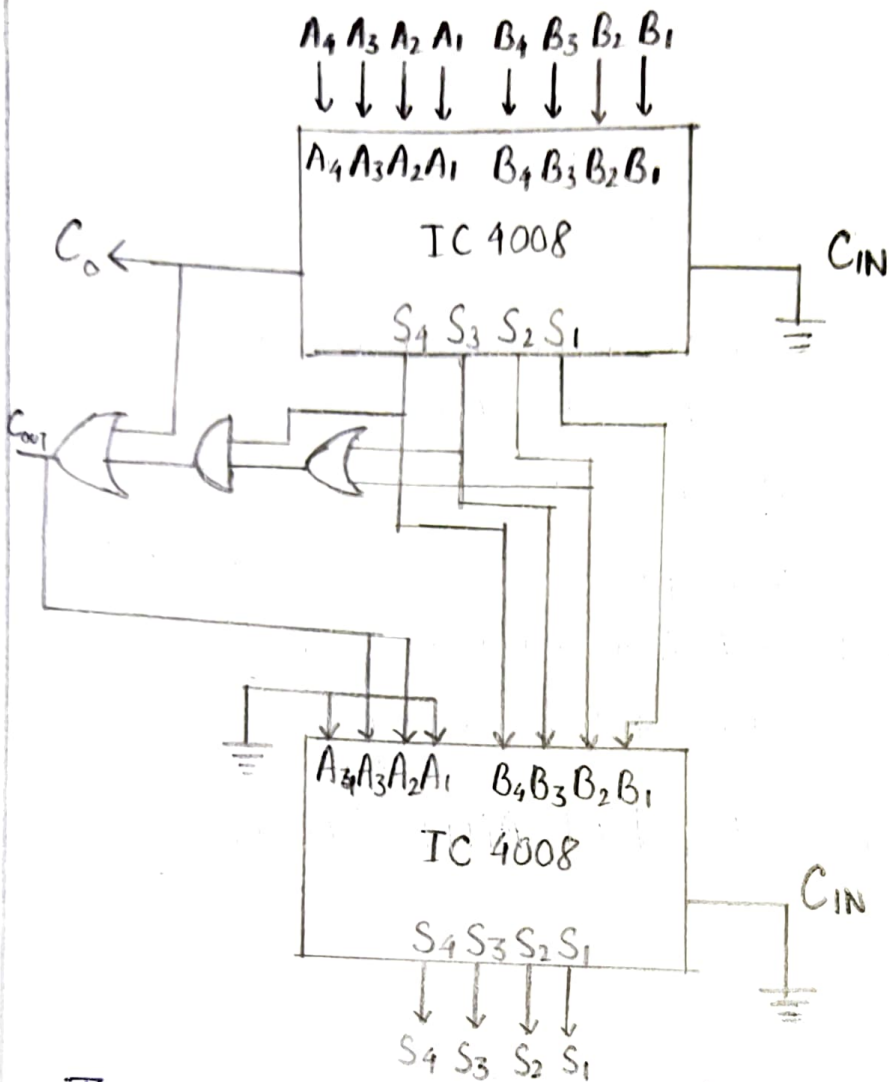 A4 A3 A2 A1 B4 B3 B2 B1
A4 A3 A2 A1 B4 B3 B2 B1
IC 4008
Co
CIN
S4 S3 S2 S1
COUT
A4 A3 A2 A1 B4 B3 B2 B1
IC 4008
CIN
S4 S3 S2 S1
S4 S3 S2 S1